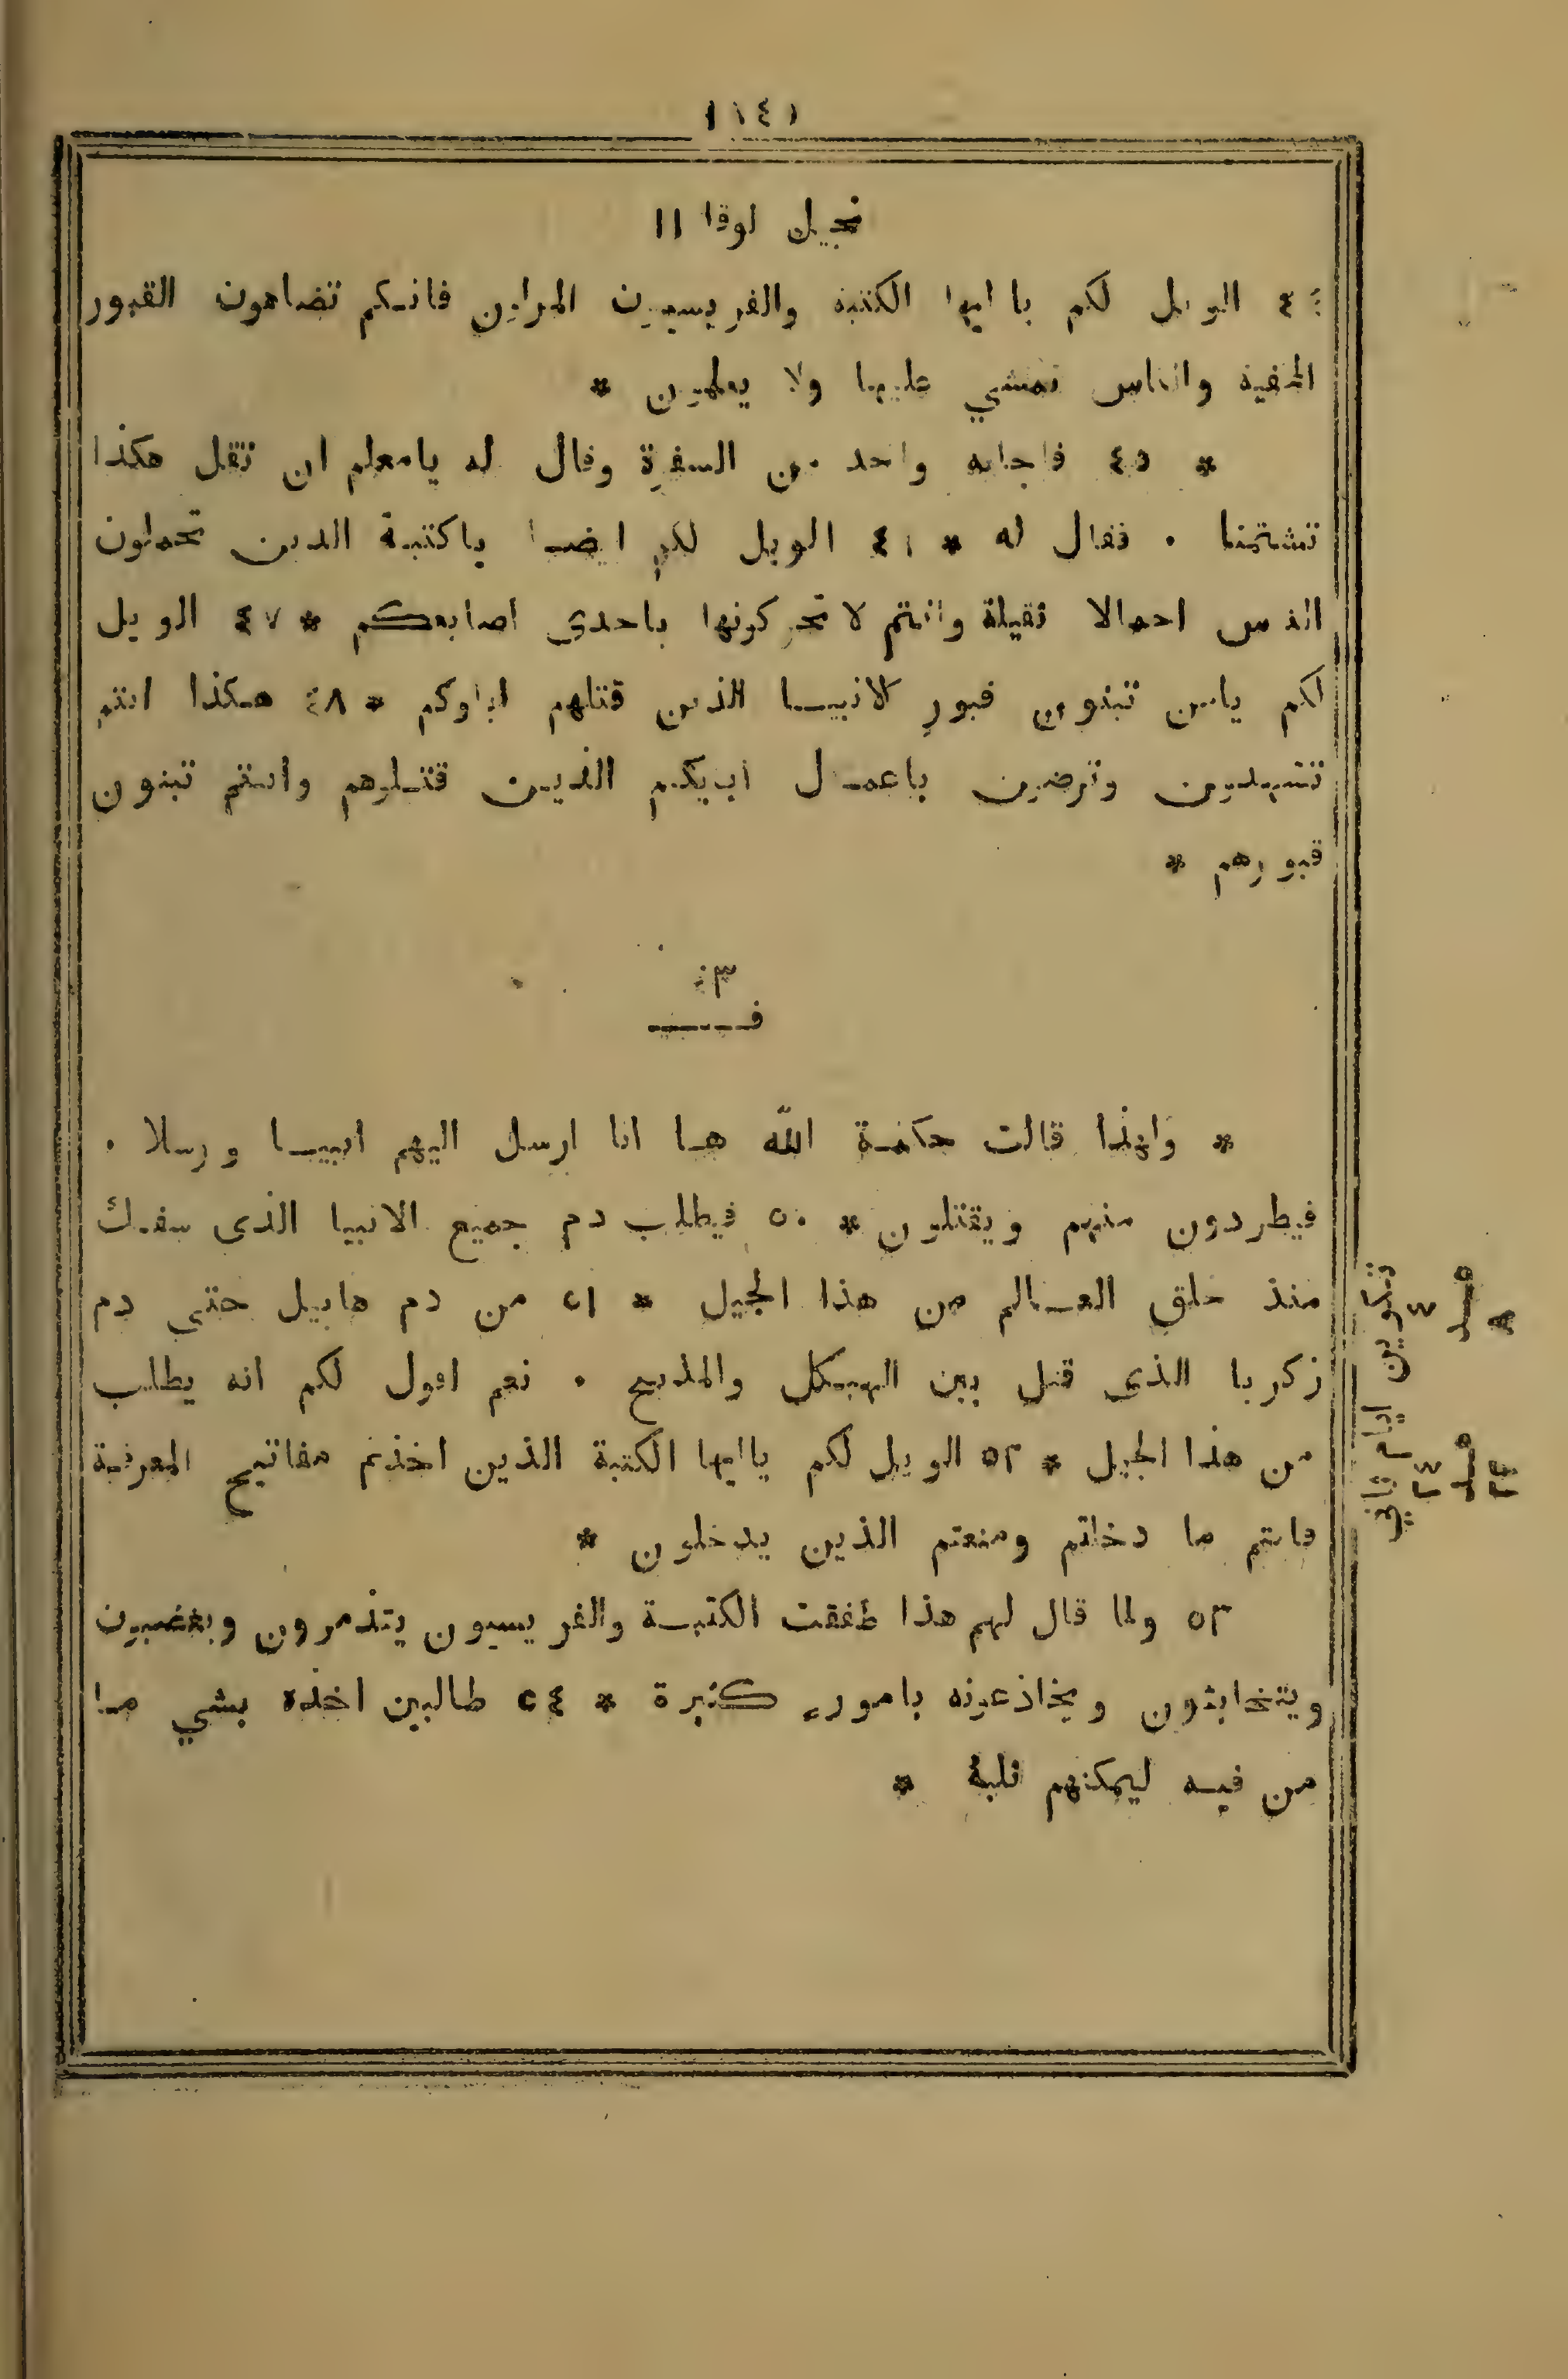 ١٤١
نجيل لوقا ١١
٤٤ الويل لكم ياايها الكتبة والفريسيون المراين فانكم تضاهون القبور
المخفية والناس تمشي عليها ولا يعلمون *
* ٤٥ فاجابه واحد من السفرة وقال له يامعلم ان تقل هكذا
تشتمنا . فقال له * ٤٦ الويل لكم ايضا ياكتبة الذين تحملون
الناس احمالا ثقيلة وانتم لا تحركونها باحدى اصابعكم * ٤٧ الويل
لكم يامن تبنون قبور الانبيا الذين قتلهم اباوكم * ٤٨ هكذا انتم
تشهدون وترضون باعمال ابيكم الذين قتلوهم وانتم تبنون
قبورهم *
ف
* ولهذا قالت حكمة الله ها انا ارسل اليهم انبيا ورسلا .
فيطردون منهم ويقتلون * ٥٠ فيطلب دم جميع الانبيا الذى سفك
منذ خلق العالم من هذا الجيل * ٥١ من دم هابيل حتى دم
زكريا الذى قتل بين الهيكل والمذبح . نعم اقول لكم انه يطلب
من هذا الجيل * ٥٢ الويل لكم ياايها الكتبة الذين اخذتم مفاتيح المعرفة
فانتم ما دخلتم ومنعتم الذين يدخلون *
٥٣ ولما قال لهم هذا طفقت الكتبة والفريسيون يتذمرون وبغضبون
ويتخابثون ويخادعونه بامور كثيرة * ٥٤ طالبين اخذه بشي ما
من فيه ليمكنهم ثلبة *
تكوين ٤ ص ٨
ايام ثاني ٢٤ ص ٢٢